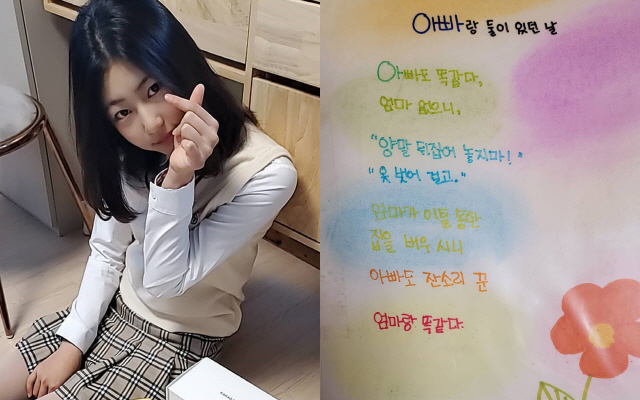 아빠랑 둘이 있던 날
아빠도 똑같다,
엄마 없으니,
"양말 뒤집어 놓지마!"
"옷 벗어 걸고."
엄마가 이틀 동안
집을 비우시니
아빠도 잔소리 꾼
엄마랑 똑같다.